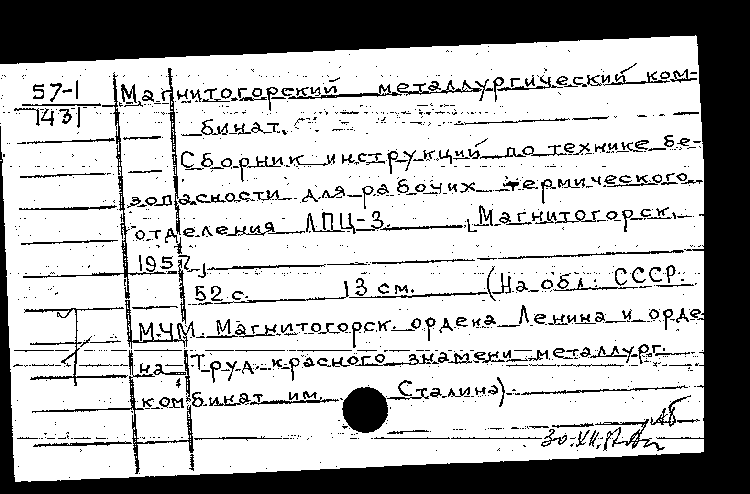 57-1
1431
Магнитогорский металлургический ком-
бинат.
Сборник инструкций по технике бе-
зопасности для рабочих термического
отделения ЛПЦ-3. Магнитогорск,
1957,
52 с. 13 см. (На обл.: СССР.
МЧМ. Магнитогорск. ордена Ленина и орде
на Труд. красного знамени металлург.
комбинат им. Сталина).